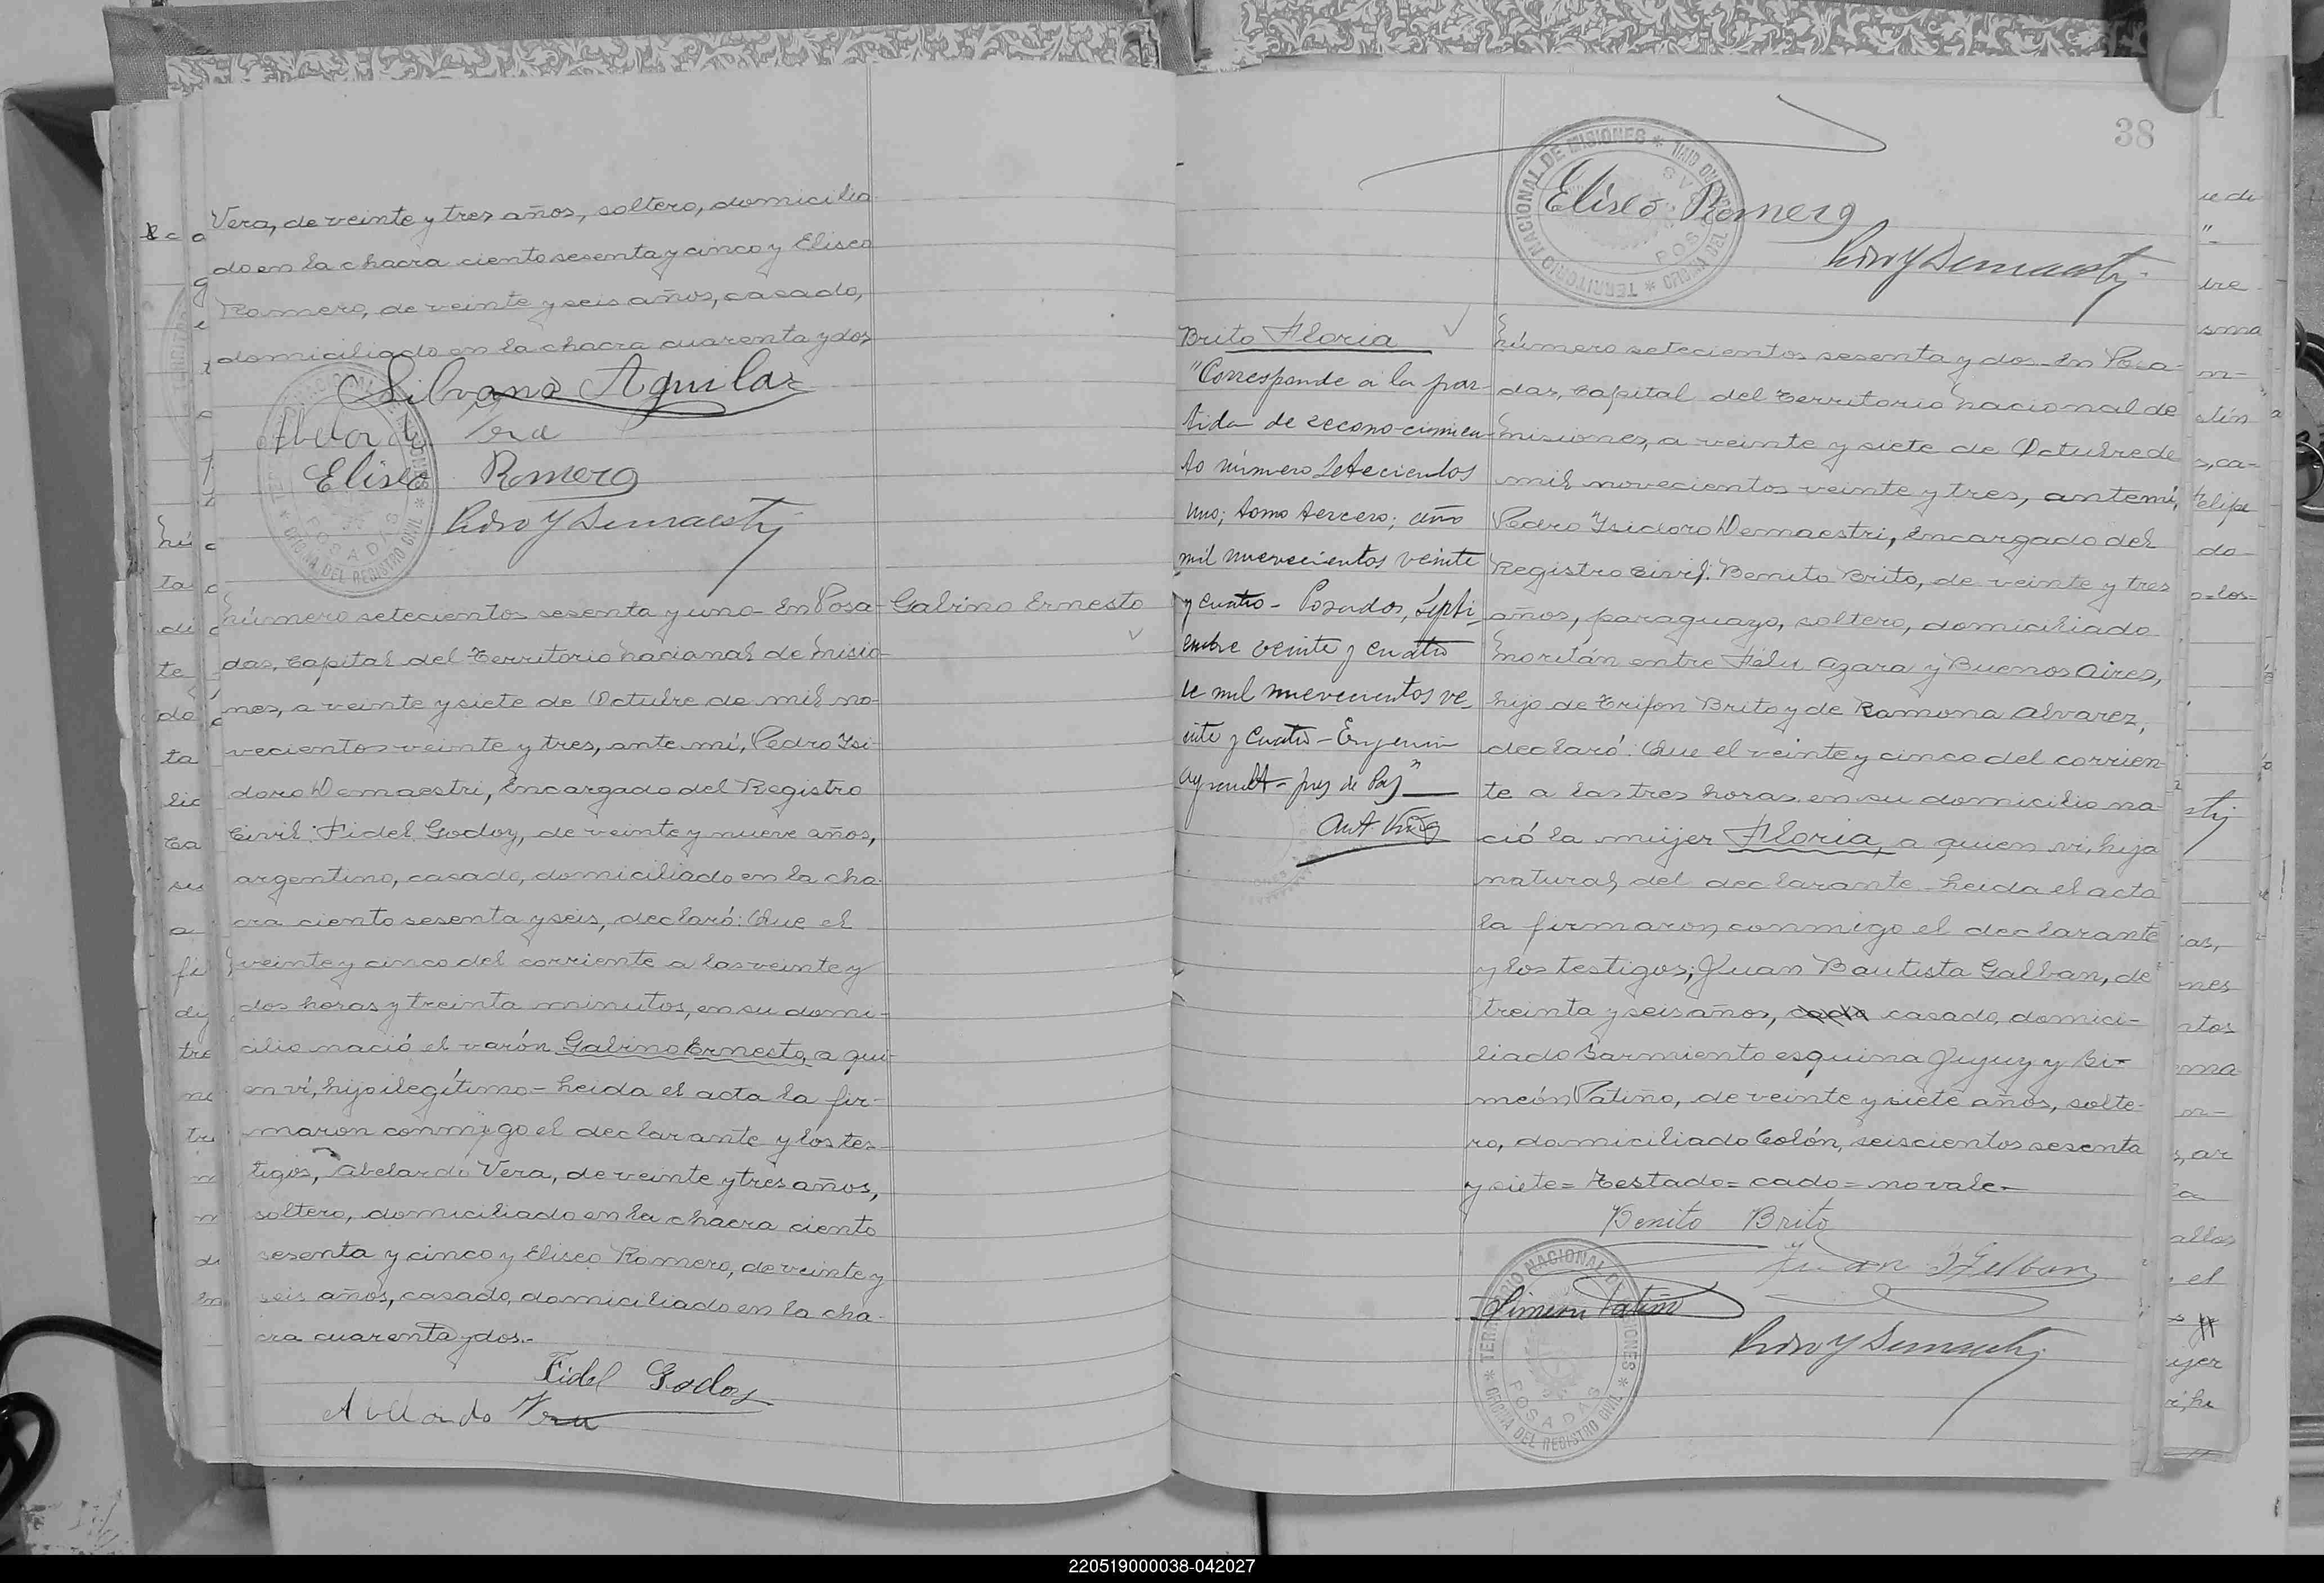 Vera, de veinte y tres años, soltero, domicilia
do en la chacra ciento sesenta y cinco y Eliseo
Romero, de veinte y seis años, casado,
domiciliado en la chacra cuarenta y dos
Silvano Aguilar
Abelardo Vera
Eliseo Romero
Pedro Y Demaestri
Número setecientos sesenta y uno - En Posa-
Gabino Ernesto
das, Capital del Territorio Nacional de Misio-
nes, a veinte y siete de Octubre de mil no-
vecientos veinte y tres, ante mí, Pedro Ysi-
doro Demaestri, Encargado del Registro
Civil: Fidel Godoy, de veinte y nueve años,
argentino, casado, domiciliado en la cha-
cra ciento sesenta y seis, declaró: Que el
veinte y cinco del corriente a las veinte y
dos horas y treinta minutos, en su domi-
cilio nació el varón Gabino Ernesto, a qui-
en ví, hijo ilegítimo - Leida el acta la fir-
maron conmigo el declarante y los tes-
tigos, Abelardo Vera, de veinte y tres años,
soltero, domiciliado en la chacra ciento
sesenta y cinco y Eliseo Romero, de veinte y
seis años, casado, domiciliado en la cha-
cra cuarenta y dos.-
Fidel Godoy
Abelardo Vera
38
TERRITORIO NACIONAL DE MISIONES
Eliseo Romero
Pedro Y Demaestri
Brito Floria
"Corresponde a la par-
tida de reconocimien-
to número setecientos
uno; tomo tercero; año
mil nuevecientos veinte
y cuatro - Posadas, Septi-
embre veinte y cuatro
de mil nuevecientos ve-
inte y cuatro - Eugenio
juez de Paz"
Número setecientos sesenta y dos - En Posa-
das, Capital del Territorio Nacional de
Misiones, a veinte y siete de Octubre de
mil novecientos veinte y tres, ante mí,
Pedro Ysidoro Demaestri, Encargado del
Registro Civil: Benito Brito, de veinte y tres
años, paraguayo, soltero, domiciliado
entre Felix Azara y Buenos Aires,
hijo de Trifon Brito y de Ramona Alvarez,
declaró: Que el veinte y cinco del corrien-
te a las tres horas en su domicilio na-
ció la mujer Floria, a quien ví, hija
natural del declarante - Leida el acta
la firmaron conmigo el declarante
y los testigos; Juan Bautista Galban, de
treinta y seis años, cado casado, domici-
liado Sarmiento esquina Jujuy y Si-
meón Patiño, de veinte y siete años, solte-
ro, domiciliado Colón, seiscientos sesenta
y siete = Testado = cado = no vale -
Benito Brito
Juan Galban
Simeon Patiño
Pedro Y Demaestri
TERRITORIO NACIONAL DE MISIONES * OFICINA DEL REGISTRO CIVIL * POSADAS
220519000038-042027